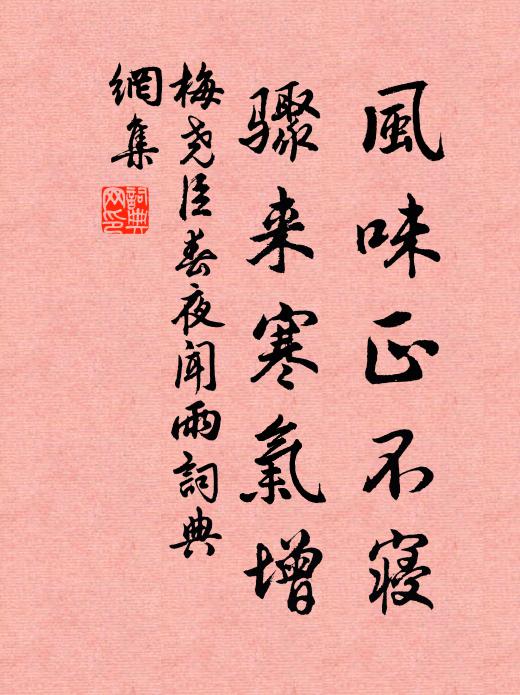 風味正不寝
驟来寒氣增
梅尧臣春夜闻雨詞典
網集
詞典网印